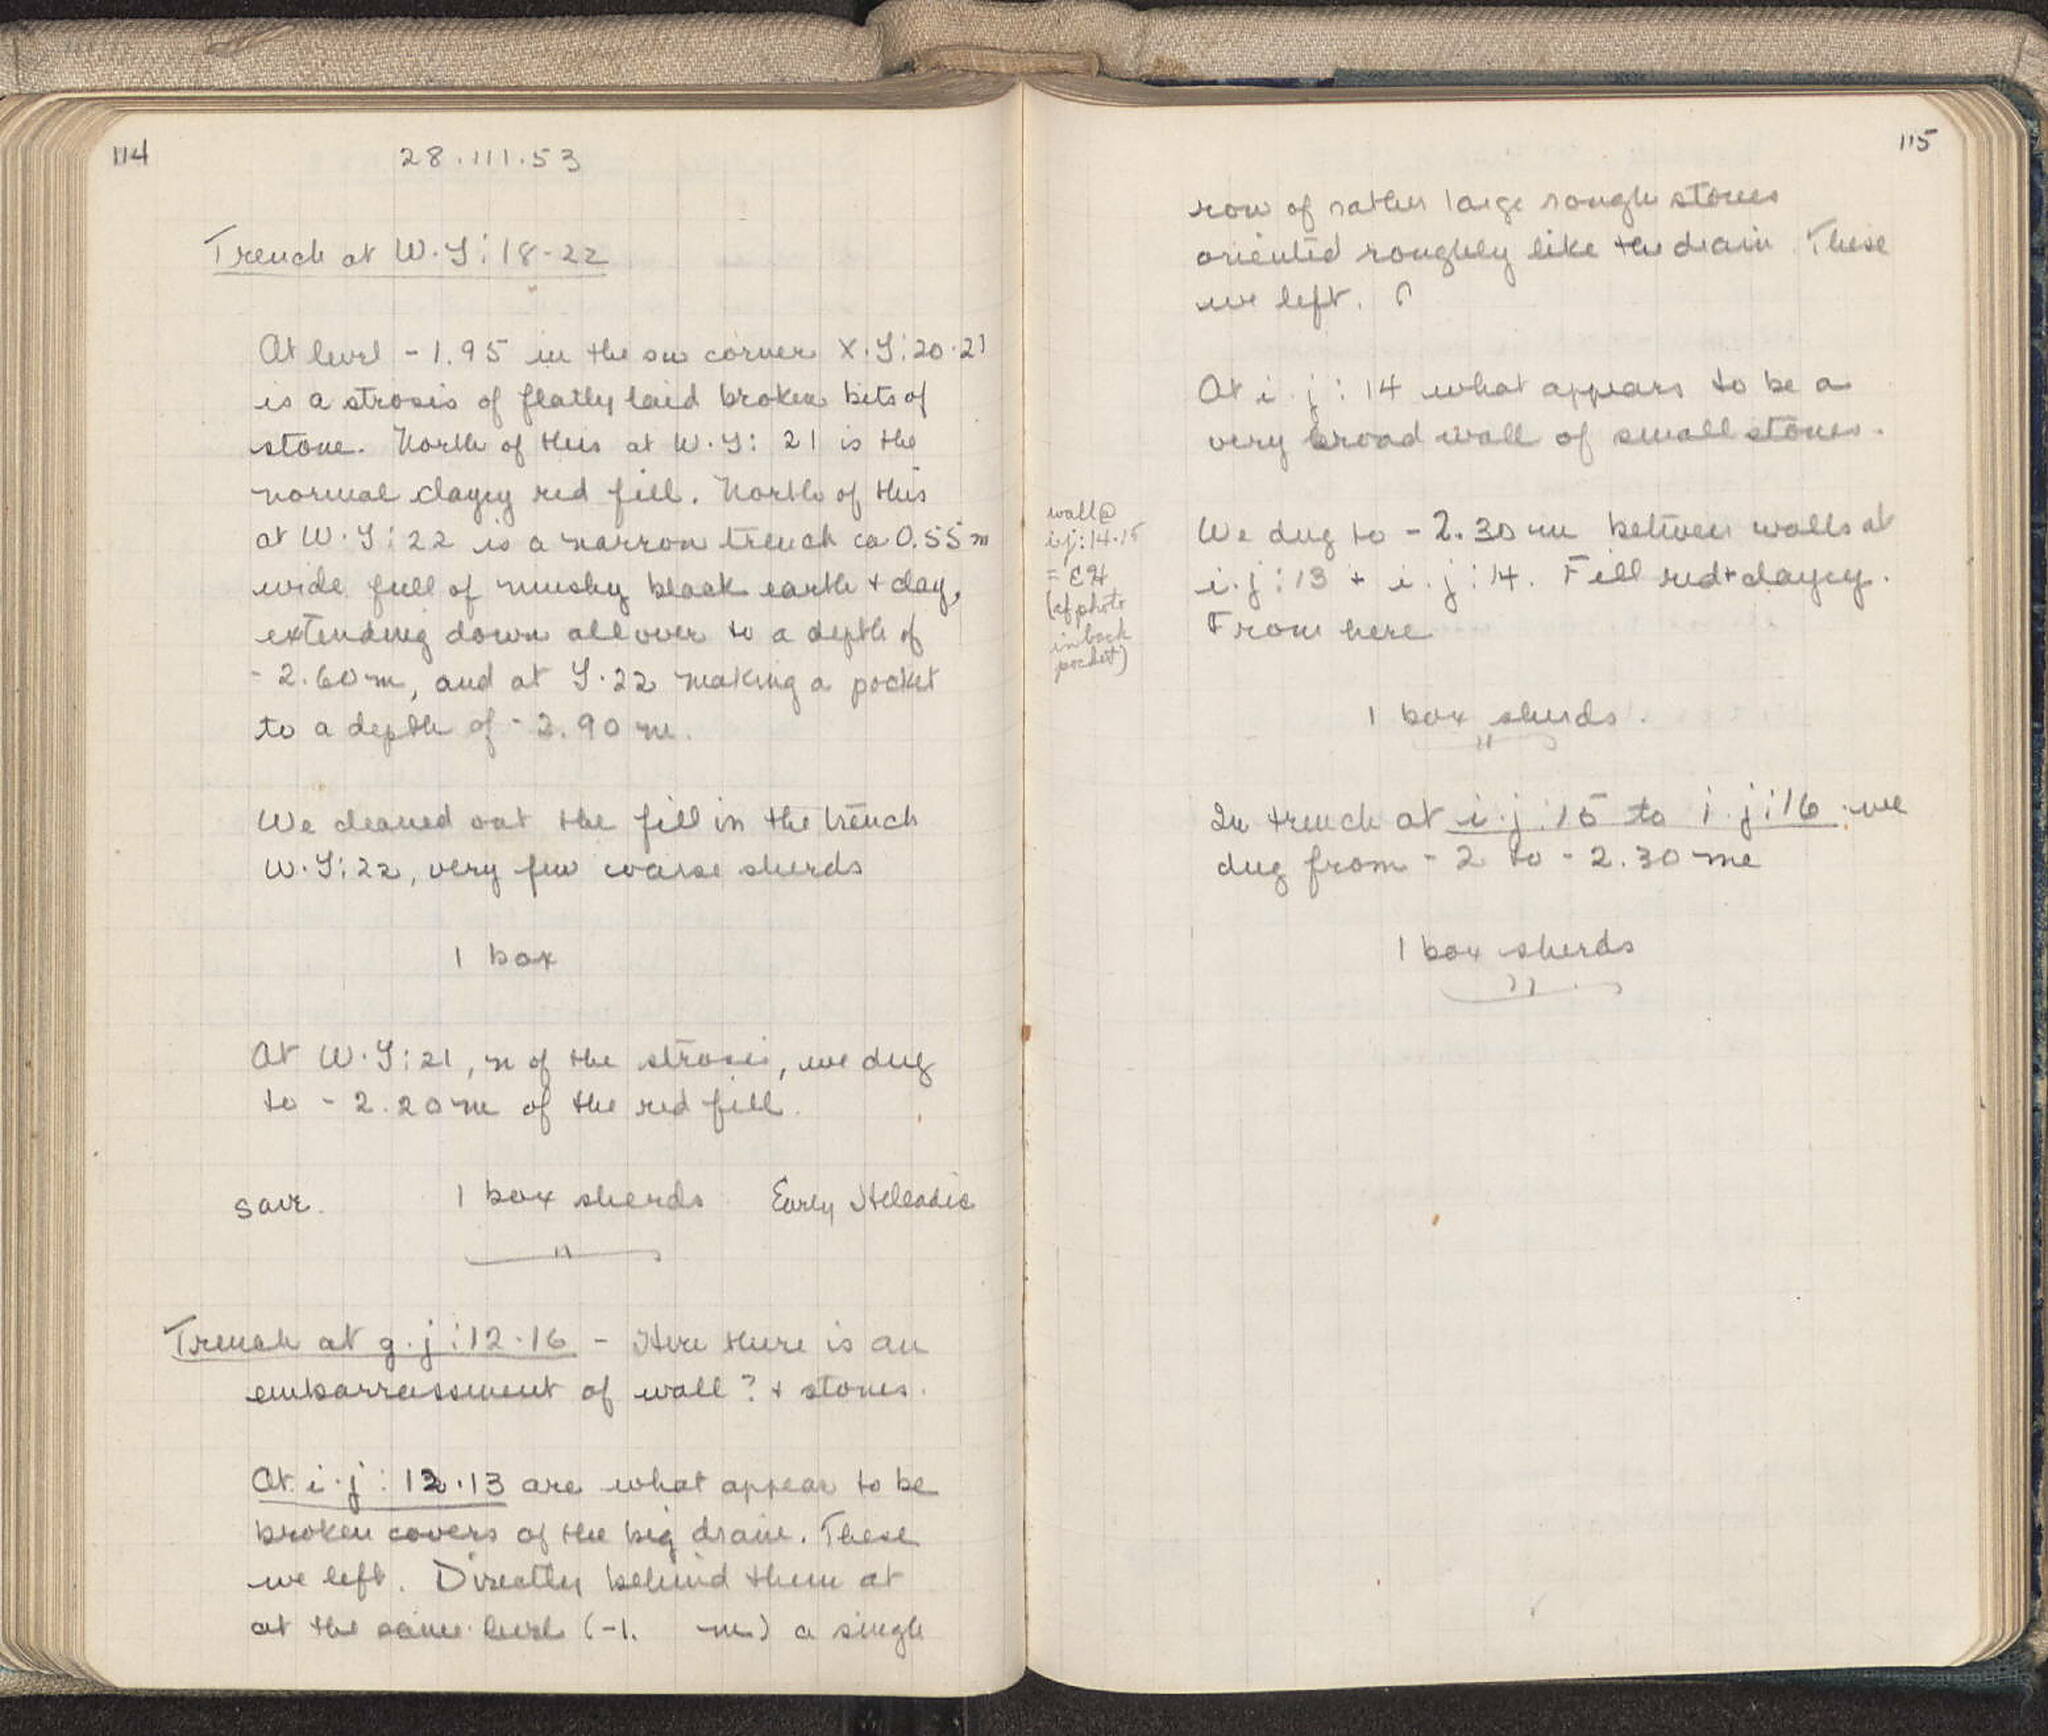 114
28.III.53
Trench at W.Y:18-22
At level -1.95 in the sw corner X.Y:20.21
is a strosis of flatly laid broken bits of
stone. North of this at W.Y: 21 is the
normal clayey red fill. North of this
at W.Y:22 is a narrow trench ca 0.55 m
wide full of mushy black earth + clay,
extending down all over to a depth of
-2.60 m, and at Y.22 making a pocket
to a depth of -2.90 m.
We cleaned out the fill in the trench
W.Y:22, very few coarse sherds
1 box
At W.Y:21, n of the strosis, we dug
to -2.20 m of the red fill.
save. 1 box sherds Early Helladic
"
Trench at g.j:12.16 - Here there is an
embarrassment of wall? + stones.
At i.j: 12.13 are what appear to be
broken covers of the big drain. These
we left. Directly behind them at
at the same level (-1. m) a single
115
row of rather large rough stones
oriented roughly like the drain. These
we left.
At i.j:14 what appears to be a
very broad wall of small stones.
wall@
i.j:14.15
= EH
(cf photo
in back
pocket)
We dug to -2.30 m between walls at
i.j:13 + i.j:14. Fill red + clayey.
From here
1 box sherds.
"
In trench at i.j:15 to i.j:16 we
dug from -2 to -2.30 m
1 box sherds
"